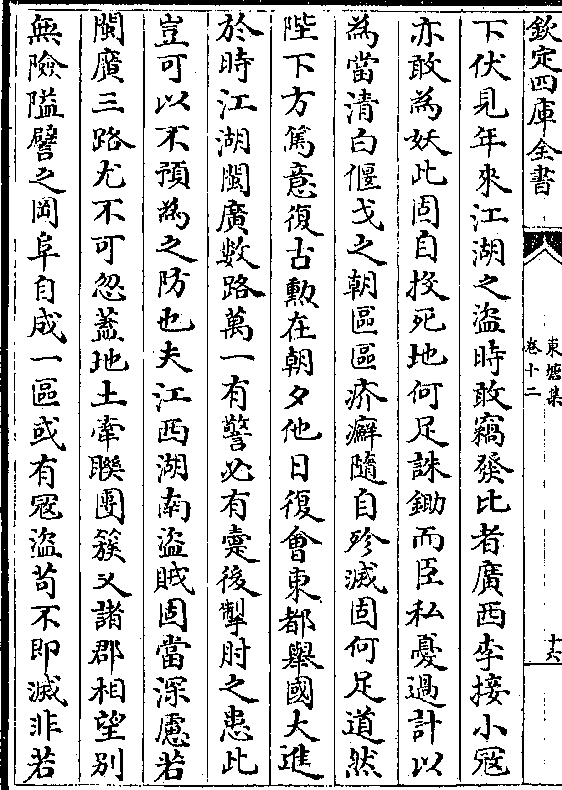 欽定四庫全書
東塘集
卷十二
十六
下伏見年來江湖之盜時敢竊發比者廣西李接小冦
亦敢為妖此固自投死地何足誅鋤而臣私憂過計以
為當清白偃戈之朝區區疥癬隨自殄滅固何足道然
陛下方篤意復古勲在朝夕他日復會東都舉國大進
於時江湖閩廣數路萬一有警必有橐後掣肘之患此
豈可以不預為之防也夫江西湖南盜賊固當深慮若
閩廣三路尤不可忽蓋地土牽聨團簇又諸郡相望别
無險隘譬之岡阜自成一區或有冦盜苟不即滅非若